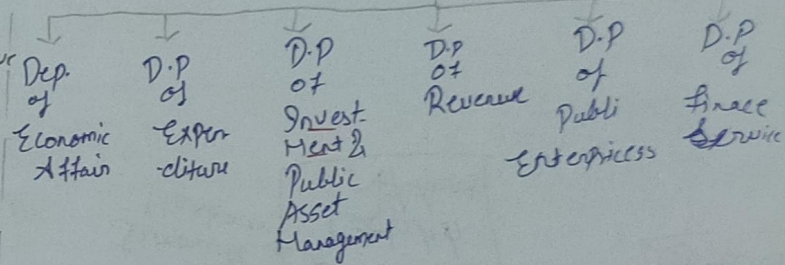 Dep.
of
Economic
Affair
D.P
of
Expen
-diture
D.P
of
Invest-
Ment &
Public
Asset
Management
D.P
of
Revenue
D.P
of
Publi
Enterpricess
D.P
of
finace
Service